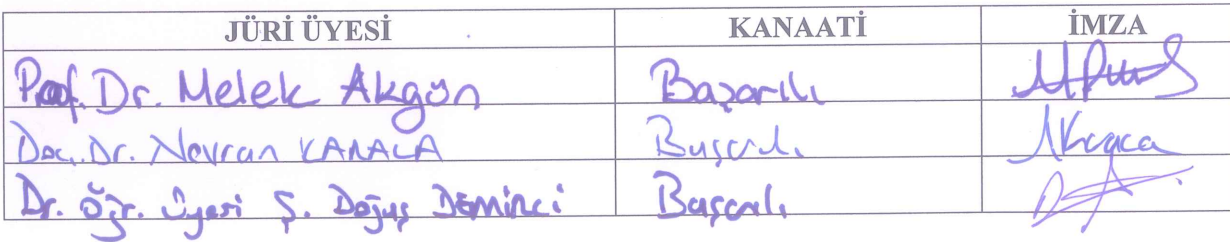 JÜRİ ÜYESİ KANAATİ İMZA
Prof. Dr. Melek Akgün Başarılı
Doç. Dr. Nevran KARACA Başarılı
Dr. Öğr. Üyesi Ş. Doğuş DEMİRCİ Başarılı